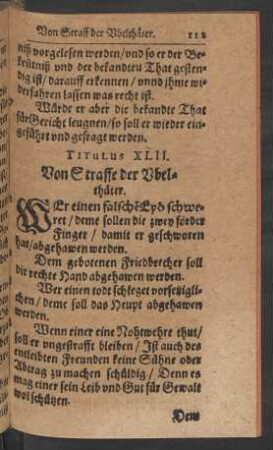 Von Straff der Vbelthäter. 112
niß vorgelesen werden/vnd so er der Be-
kentniß vnd der bekandten That gesten-
dig ist/ darauff erkennen / vnnd jhme wi-
derfahren lassen was recht ist.
Würde er aber die bekandte That
für Gericht leugnen/so soll er wieder ein-
geführt vnd gefragt werden.
TITULUS XLII.
Von Straffe der Vbel-
thäter.
WEr einen falschẽ Eyd schwe-
ret / deme sollen die zwey förder
Finger / damit er geschworen
hat/abgehawen werden.
Dem gebotenen Friedbrecher soll
die rechte Hand abgehawen werden.
Wer einen todt schleget vorsetziglI-
chen/ deme soll das Heupt abgehawen
werden.
Wenn einer eine Nohtwehre thut/
soll er vngestrafft bleiben / Ist auch des
entleibten Freunden keine Sühne oder
Abtrag zu machen schüldig / Denn es
mag einer sein Leib vnd Gut für Gewalt
wol schützen.
Dem